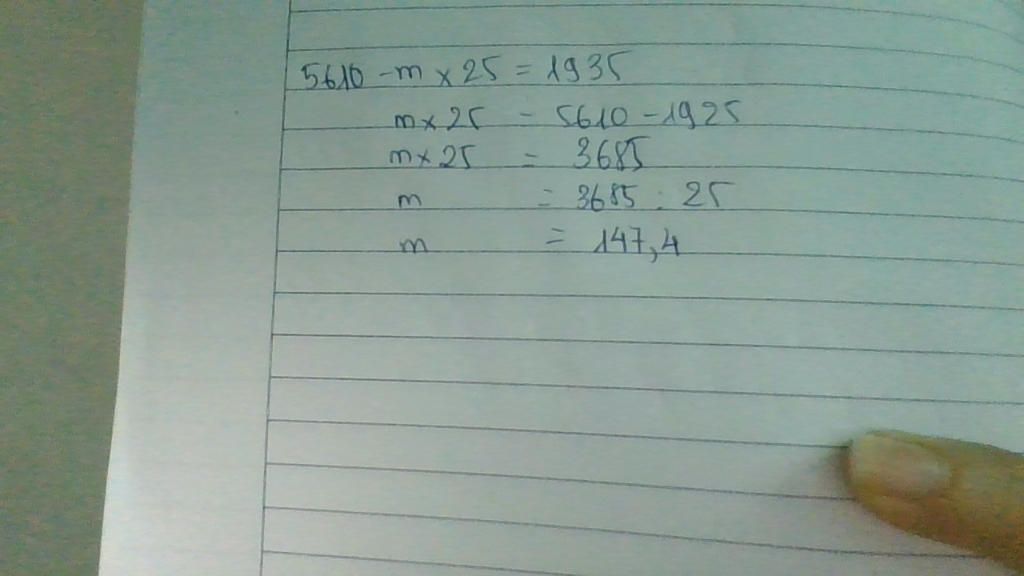 5610 - m x 25 = 1935
m x 25 = 5610 - 1925
m x 25 = 3685
m = 3685 : 25
m = 147,4